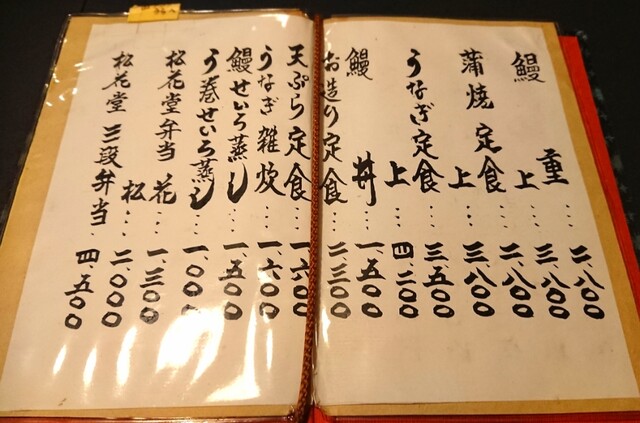 鰻重…二、八〇〇
上…三、八〇〇
蒲焼定食…二、八〇〇
上…三、八〇〇
うなぎ定食…三、五〇〇
上…四、二〇〇
鰻丼…一、五〇〇
お造り定食…二、三〇〇
天ぷら定食…一、六〇〇
うなぎ雑炊…一、六〇〇
鰻せいろ蒸し…一、五〇〇
う巻せいろ蒸し…一、〇〇〇
松花堂弁当 花…一、三〇〇
松…二、〇〇〇
松花堂 三段弁当…四、五〇〇